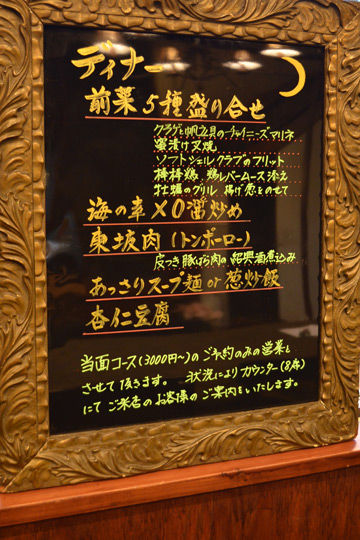 ディナー
前菜5種盛り合せ
クラゲと帆立貝のチャイニーズマリネ
蜜漬け叉焼
ソフトシェルクラブのフリット
棒棒鶏 鶏レバームース添え
牡蠣のグリル 揚げ葱をのせて
海の幸XO醤炒め
東坡肉(トンポーロー)
皮つき豚ばら肉の紹興酒煮込み
あっさりスープ麺 or 葱炒飯
杏仁豆腐
当面コース(3000円〜)のご予約のみの営業と
させて頂きます。 状況によりカウンター(8席)
にてご来店のお客様のご案内をいたします。